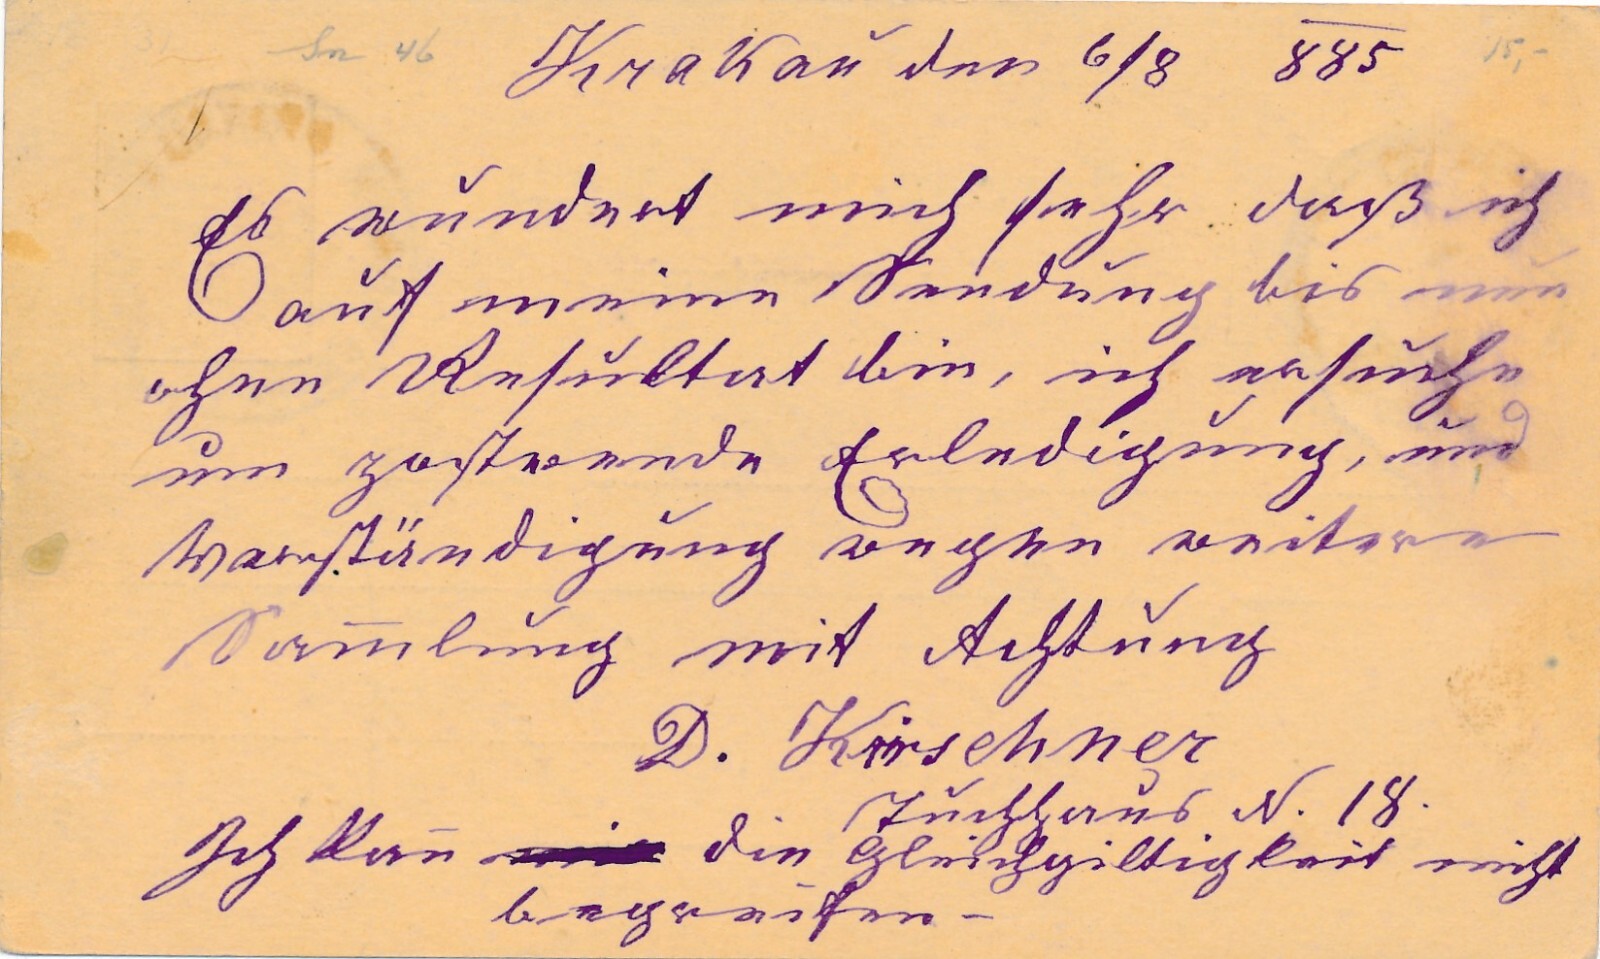 Sn 46
15,-
Krakau den 6/8 885
Es wundert mich sehr daß ich
auf meine Sendung bis nun
ohne Resultat bin, ich ersuche
um postwende Erledigung, und
Verständigung wegen weitere
Sam̅lung mit Achtung
D. Kirschner
Tuchhaus N. 18.
Ich kan̅ die Gleichgiltigkeit nicht
begreifen –